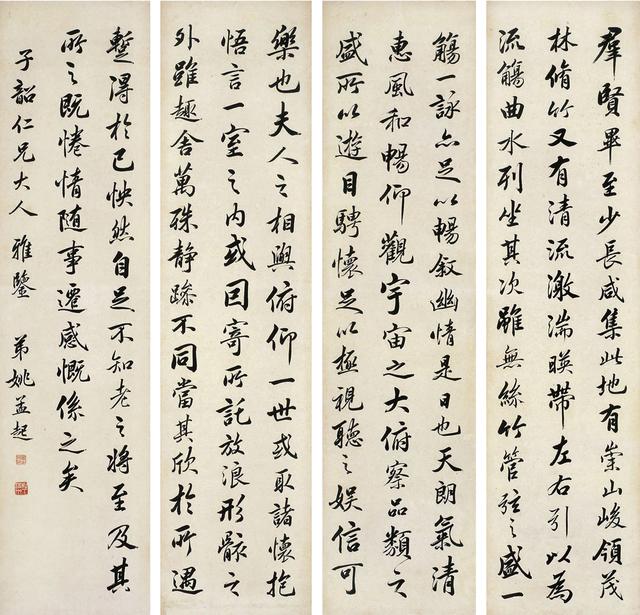 羣賢畢至少長咸集此地有崇山峻領茂
林脩竹又有清流激湍暎帶左右引以為
流觴曲水列坐其次雖無絲竹管弦之盛一
觴一詠亦足以暢敘幽情是日也天朗氣清
惠風和暢仰觀宇宙之大俯察品類之
盛所以遊目騁懷足以極視聽之娛信可
樂也夫人之相與俯仰一世或取諸懷抱
悟言一室之內或因寄所託放浪形骸之
外雖趣舍萬殊静躁不同當其欣於所遇
蹔得於己怏然自足不知老之將至及其
所之既惓情随事遷感慨係之矣
子韶仁兄大人雅鑒 弟姚孟起